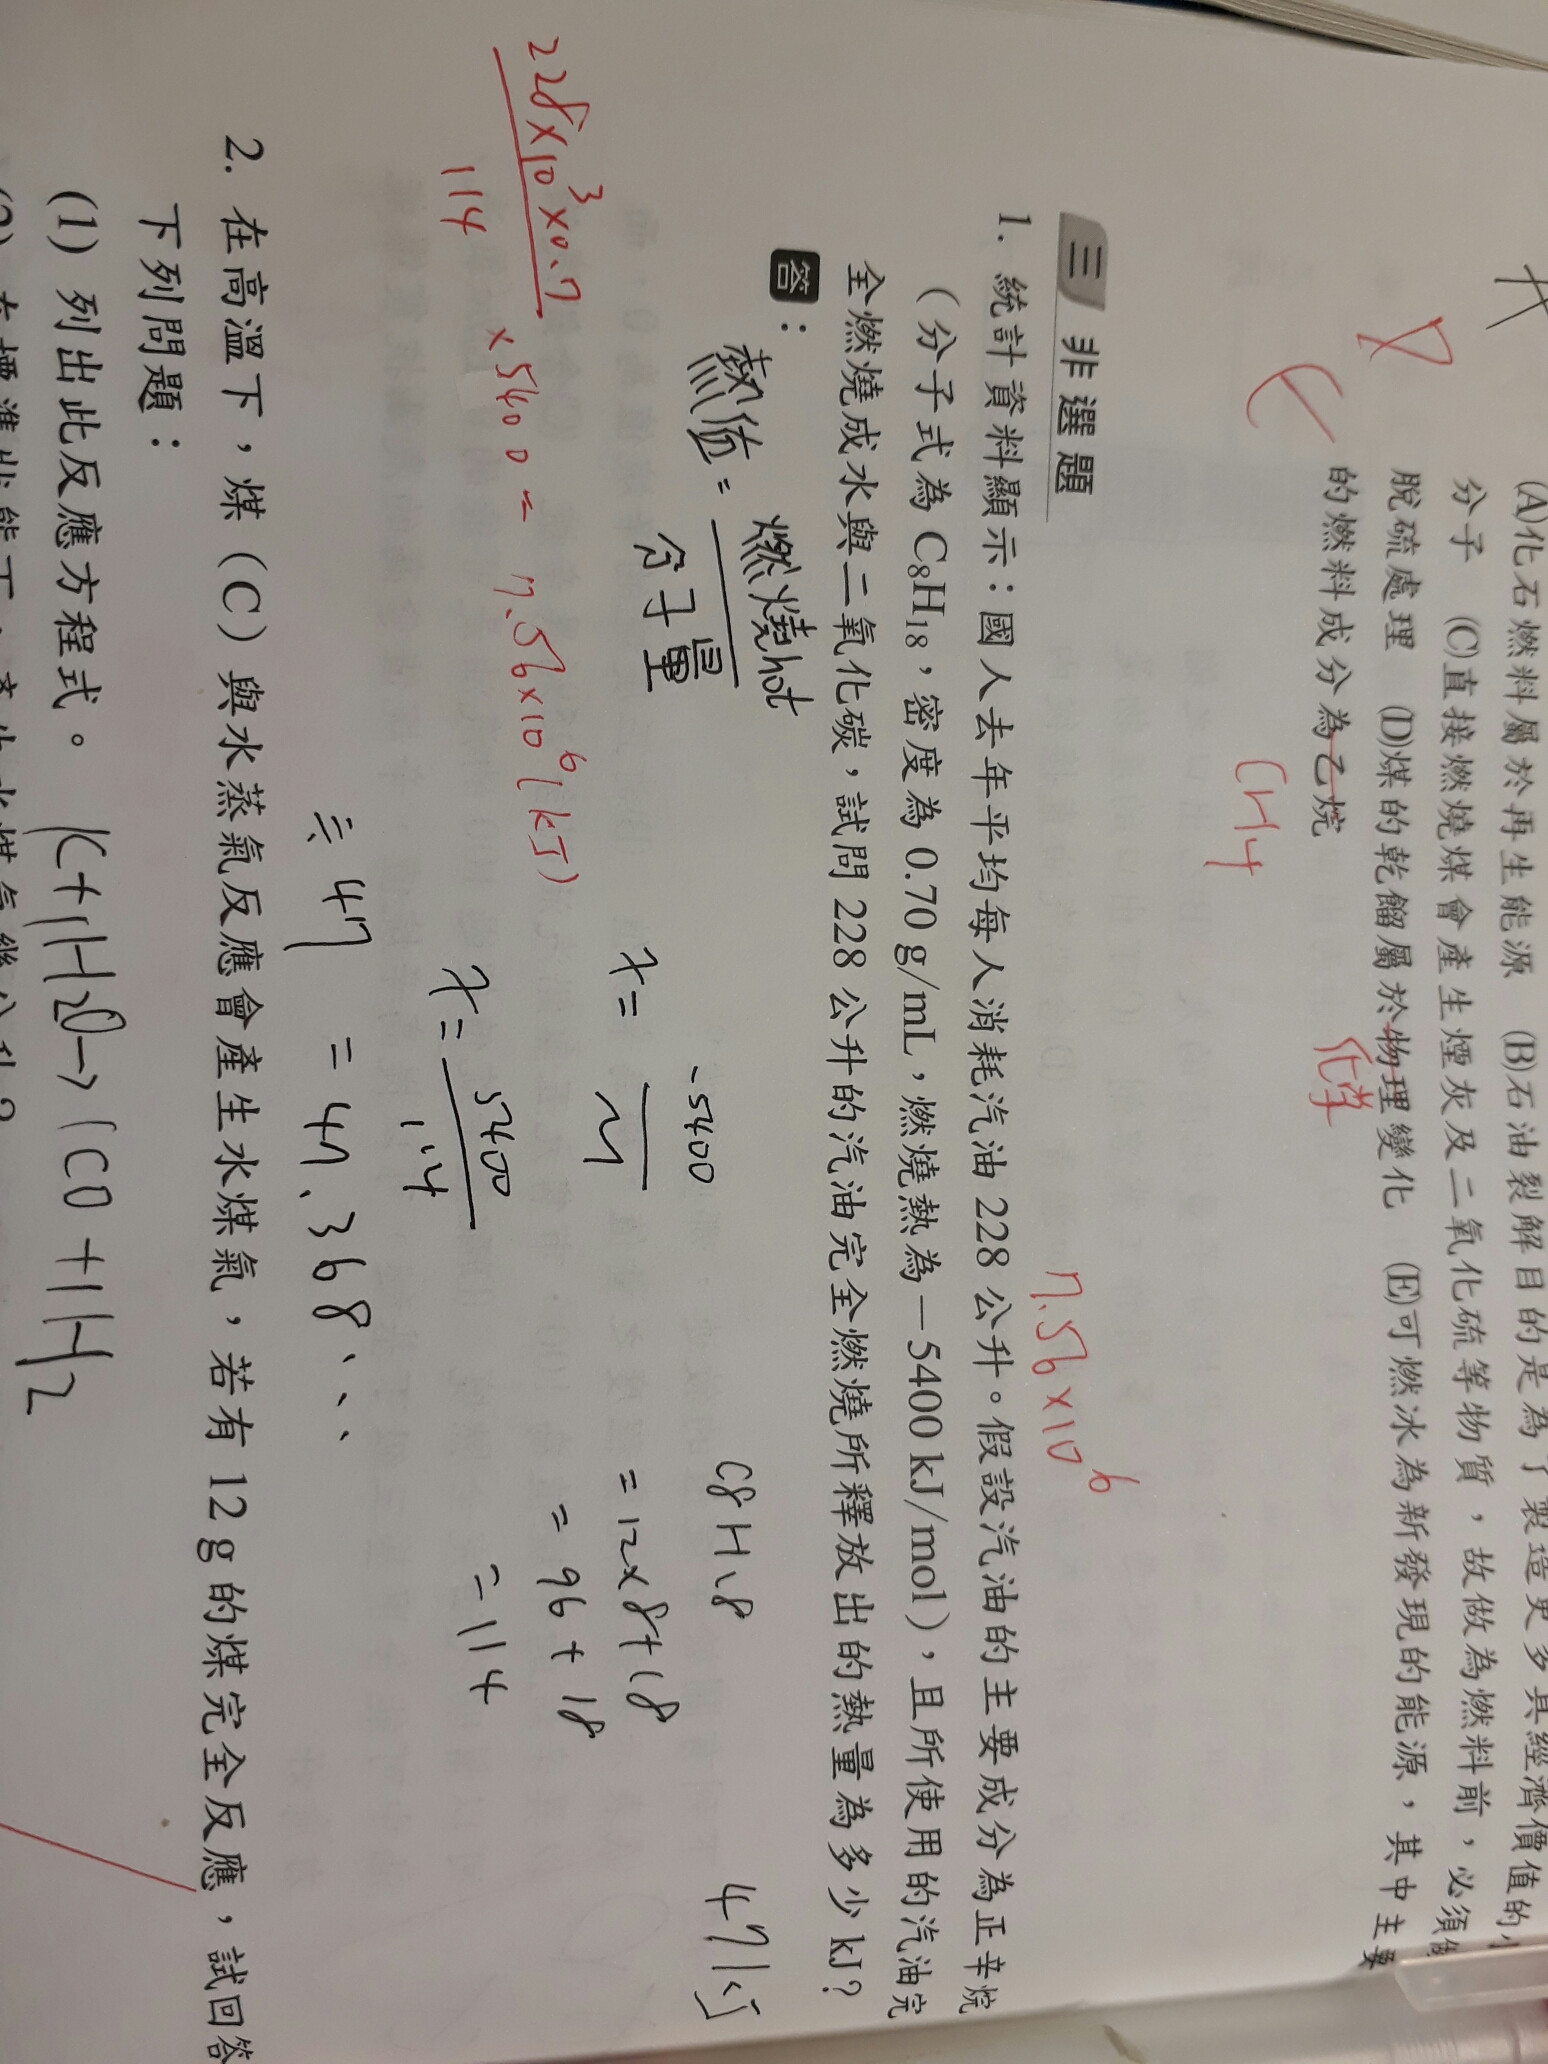 (A)化石燃料屬於再生能源　(B)石油裂解目的是為了製造更多具經濟價值的小
分子　(C)直接燃燒煤會產生煙灰及二氧化硫等物質，故做為燃料前，必須做
脫硫處理　(D)煤的乾餾屬於物理變化　(E)可燃冰為新發現的能源，其中主要
化学
的燃料成分為乙烷
CH4
三 非選題
7.56×10⁶
1. 統計資料顯示：國人去年平均每人消耗汽油 228 公升。假設汽油的主要成分為正辛烷
（分子式為 C₈H₁₈，密度為 0.70 g/mL，燃燒熱為－5400 kJ/mol），且所使用的汽油完
全燃燒成水與二氧化碳，試問 228 公升的汽油完全燃燒所釋放出的熱量為多少 kJ？
答：
熱值 = 燃燒hot
分子量
-5400
x =
C8H18
= 12×8+18
= 96+18
= 114
47kJ
x = 5400
114
= 47.368、、、
47
228×10³×0.7
114
×5400 = 7.56×10⁶(kJ)
2. 在高溫下，煤（C）與水蒸氣反應會產生水煤氣，若有 12 g 的煤完全反應，試回答
下列問題：
(1) 列出此反應方程式。 1C+1H2O→1CO+1H2